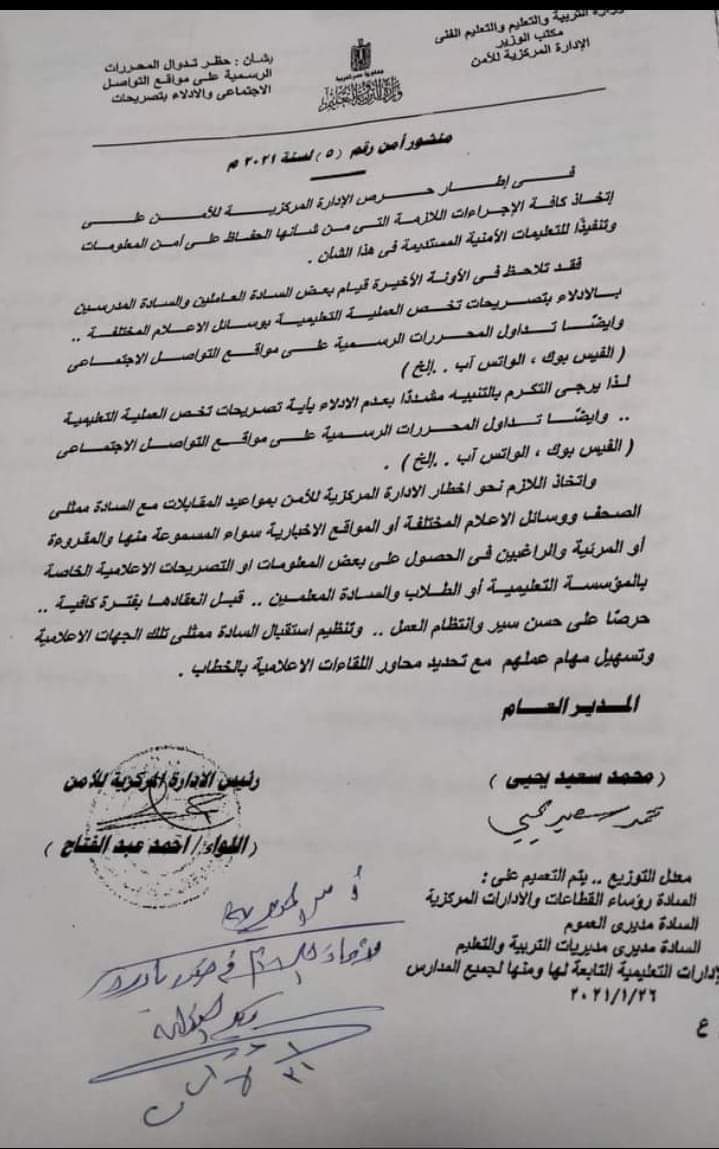 وزارة التربية والتعليم والتعليم الفنى
مكتب الوزير
الإدارة المركزية للأمن
جمهورية مصر العربية
وزارة التربية والتعليم
بشأن : حظر تدوال المحررات
الرسمية على مواقع التواصل
الاجتماعى والادلاء بتصريحات
منشور أمن رقم ( ٥ ) لسنة ٢٠٢١ م
فى إطار حرص الإدارة المركزية للأمن على
إتخاذ كافة الإجراءات اللازمة التى من شأنها الحفاظ على أمن المعلومات
وتنفيذًا للتعليمات الأمنية المستديمة فى هذا الشأن .
فقد تلاحظ فى الأونة الأخيرة قيام بعض السادة العاملين والسادة المدرسين
بالادلاء بتصريحات تخص العملية التعليمية بوسائل الاعلام المختلفة ..
وايضًا تداول المحررات الرسمية على مواقع التواصل الاجتماعى
( الفيس بوك ، الواتس آب . .إلخ )
لذا يرجى التكرم بالتنبيه مشددًا بعدم الادلاء بأية تصريحات تخص العملية التعليمية
.. وايضًا تداول المحررات الرسمية على مواقع التواصل الاجتماعى
( الفيس بوك ، الواتس آب . .إلخ ) .
واتخاذ اللازم نحو اخطار الادارة المركزية للأمن بمواعيد المقابلات مع السادة ممثلى
الصحف ووسائل الاعلام المختلفة أو المواقع الاخبارية سواء المسموعة منها والمقروءة
أو المرئية والراغبين فى الحصول على بعض المعلومات او التصريحات الاعلامية الخاصة
بالمؤسسة التعليمية أو الطلاب والسادة المعلمين .. قبل انعقادها بفترة كافية ..
حرصًا على حسن سير وانتظام العمل .. وتنظيم استقبال السادة ممثلى تلك الجهات الاعلامية
وتسهيل مهام عملهم مع تحديد محاور اللقاءات الاعلامية بالخطاب .
المدير العام
( محمد سعيد يحيى )
محمد سعيد يحيى
رئيس الادارة المركزية للأمن
( اللواء / احمد عبد الفتاح )
معدل التوزيع .. يتم التعميم على :
السادة رؤساء القطاعات والادارات المركزية
السادة مديرى العموم
السادة مديرى مديريات التربية والتعليم
الإدارات التعليمية التابعة لها ومنها لجميع المدارس
٢٠٢١/١/٢٦
ع